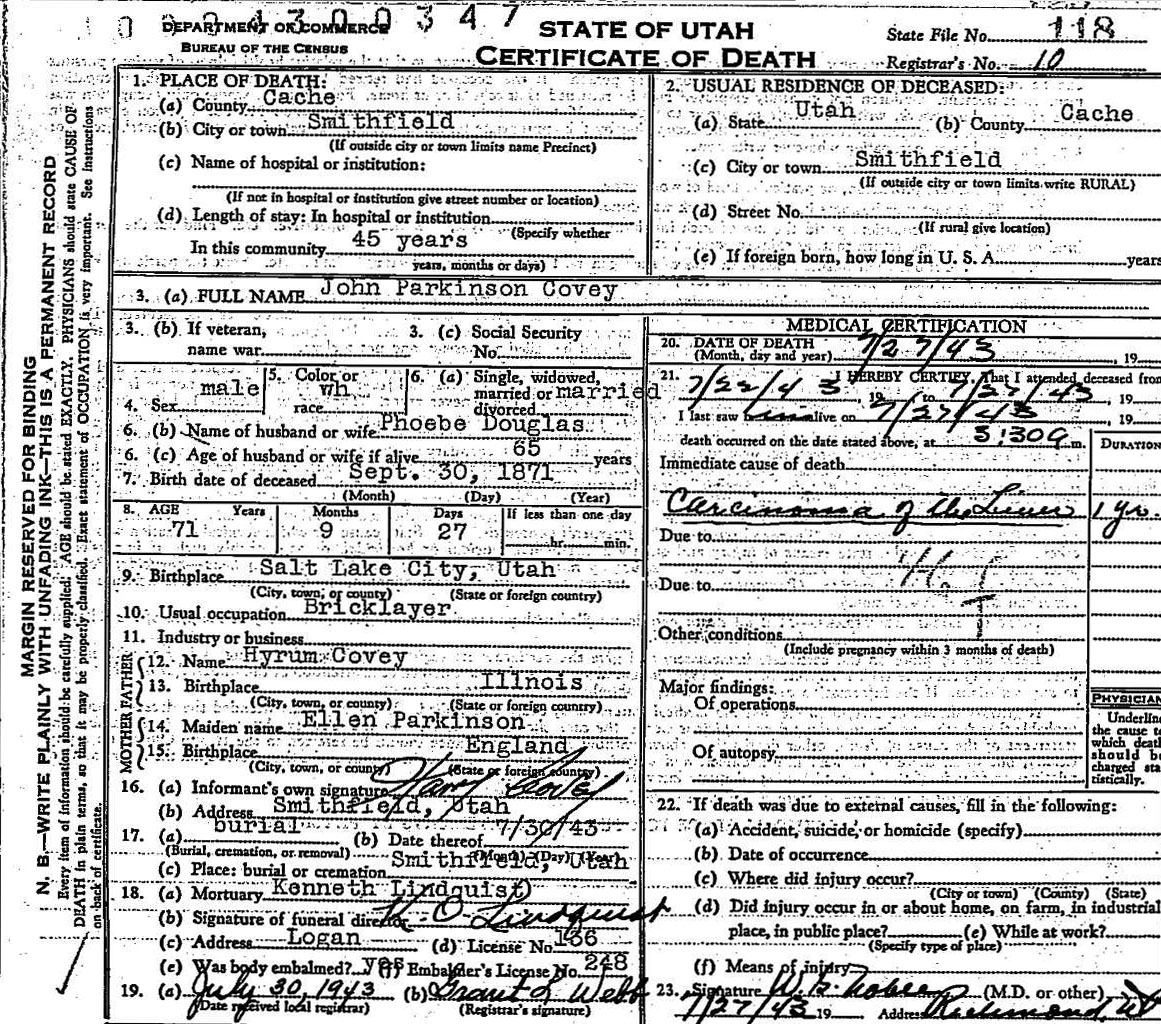 004300347
DEPARTMENT OF COMMERCE
BUREAU OF THE CENSUS
STATE OF UTAH
CERTIFICATE OF DEATH
State File No. 118
Registrar's No. 10
MARGIN RESERVED FOR BINDING
N. B.—WRITE PLAINLY WITH UNFADING INK—THIS IS A PERMANENT RECORD
Every item of information should be carefully supplied. AGE should be stated EXACTLY. PHYSICIANS should state CAUSE OF
DEATH in plain terms, so that it may be properly classified. Exact statement of OCCUPATION is very important. See instructions
on back of certificate.
1. PLACE OF DEATH:
(a) County Cache
(b) City or town Smithfield
(If outside city or town limits name Precinct)
(c) Name of hospital or institution:
(If not in hospital or institution give street number or location)
(d) Length of stay: In hospital or institution
(Specify whether
In this community 45 years
years, months or days)
2. USUAL RESIDENCE OF DECEASED:
(a) State Utah (b) County Cache
(c) City or town Smithfield
(If outside city or town limits write RURAL)
(d) Street No.
(If rural give location)
(e) If foreign born, how long in U. S. A. years
3. (a) FULL NAME John Parkinson Covey
3. (b) If veteran, name war
3. (c) Social Security No.
4. Sex male
5. Color or race wh
6. (a) Single, widowed, married or divorced married
6. (b) Name of husband or wife Phoebe Douglas
6. (c) Age of husband or wife if alive 65 years
7. Birth date of deceased Sept. 30, 1871
(Month) (Day) (Year)
8. AGE Years Months Days If less than one day
71 9 27 hr. min.
9. Birthplace Salt Lake City, Utah
(City, town, or county) (State or foreign country)
10. Usual occupation Bricklayer
11. Industry or business
FATHER
12. Name Hyrum Covey
13. Birthplace Illinois
(City, town, or county) (State or foreign country)
MOTHER
14. Maiden name Ellen Parkinson
15. Birthplace England
(City, town, or county) (State or foreign country)
16. (a) Informant's own signature Covey
(b) Address Smithfield, Utah
17. (a) burial (b) Date thereof 7/30/43
(Burial, cremation, or removal) (Month) (Day) (Year)
(c) Place: burial or cremation Smithfield, Utah
18. (a) Mortuary Kenneth Lindquist
(b) Signature of funeral director K. O. Lindquist
(c) Address Logan (d) License No. 136
(e) Was body embalmed? yes (f) Embalmer's License No. 248
19. (a) July 30, 1943 (b) Grant L Webb
(Date received local registrar) (Registrar's signature)
MEDICAL CERTIFICATION
20. DATE OF DEATH
(Month, day and year) 7/27/43, 19
21. I HEREBY CERTIFY, That I attended deceased from
7/22/43, 19 to 7/27/43, 19
I last saw him alive on 7/27/43, 19
death occurred on the date stated above, at 5:30a m.
DURATION
Immediate cause of death
Carcinoma of the Liver 1 yr.
Due to
Due to
Other conditions
(Include pregnancy within 3 months of death)
Major findings:
Of operations
Of autopsy
PHYSICIAN
Underline
the cause to
which death
should be
charged sta-
tistically.
22. If death was due to external causes, fill in the following:
(a) Accident, suicide, or homicide (specify)
(b) Date of occurrence
(c) Where did injury occur?
(City or town) (County) (State)
(d) Did injury occur in or about home, on farm, in industrial
place, in public place? (e) While at work?
(Specify type of place)
(f) Means of injury
23. Signature (M.D. or other)
7/27/43 19 Address Richmond, Ut